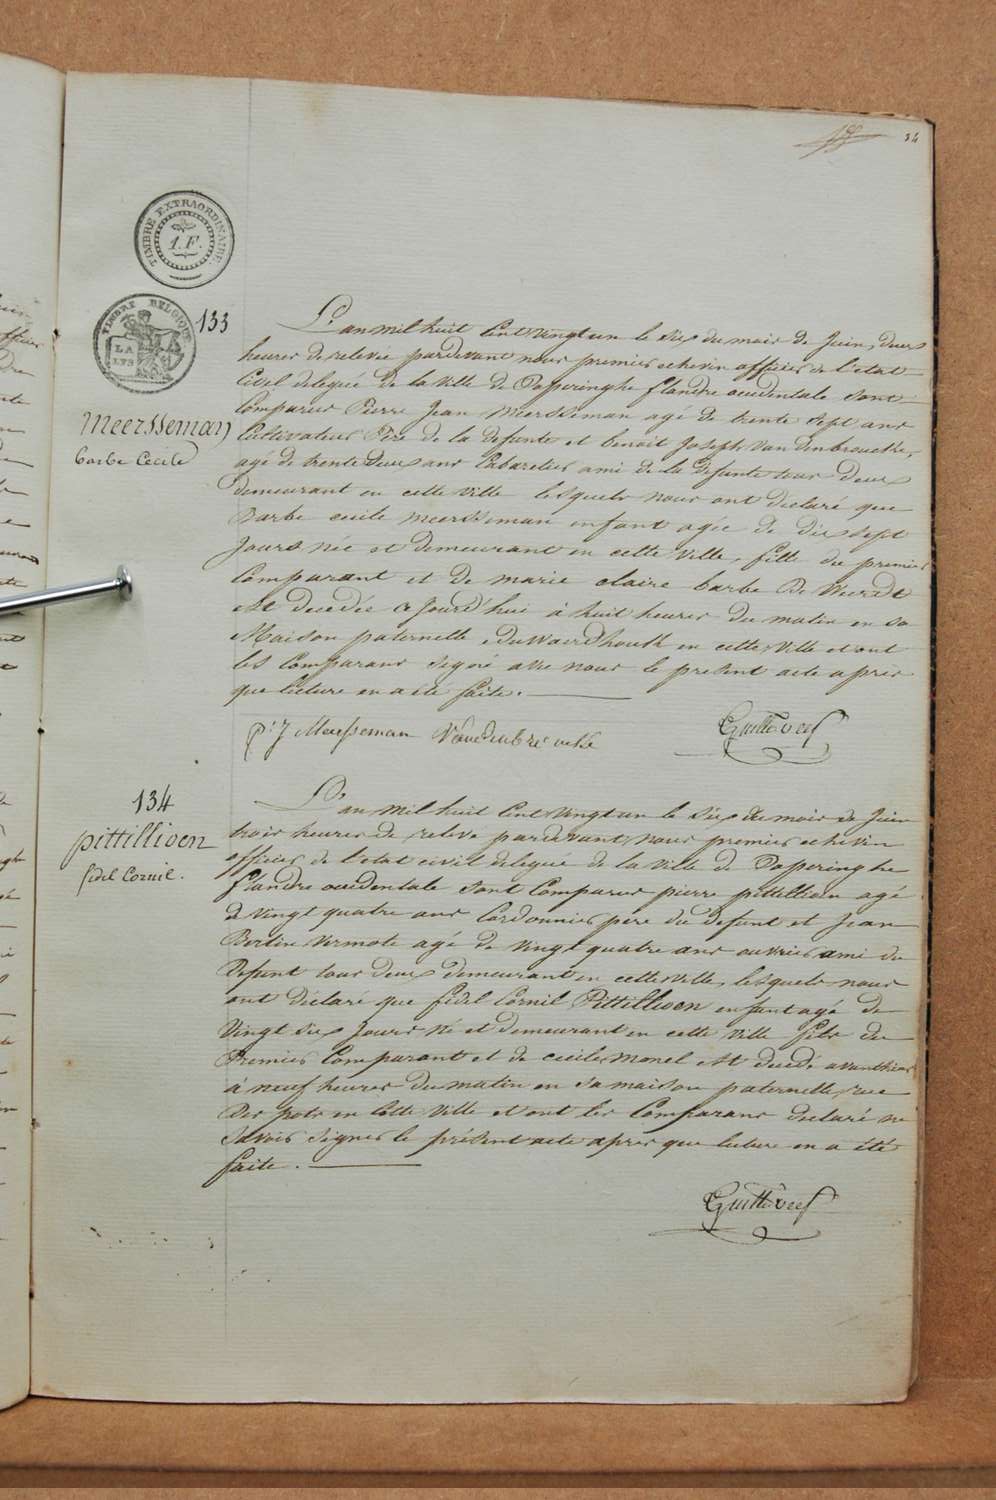 34
TIMBRE EXTRAORDINAIRE
1.F.
TIMBRE BELGIQUE
LA
LYS
133
Meersseman
barbe Cecile
L'an mil huit Cent vingt un le Six du mois de Juin, deux
heures de relevée pardevant nous premier echevin officier de l'etat
Civil delegué de la ville de Popperinghe flandre occidentale sont
Comparus Pierre Jean Meersseman agé de trente sept ans
Cultivateur Pere de la defunte et benoit Joseph Van denbroucke,
agé de trente deux ans Cabaretier ami de la defunte tous deux
demeurant en cette ville lesquels nous ont declaré que
Barbe cecile Meersseman enfant agée de dix sept
Jours née et demeurant en cette ville, fille du premier
Comparant et de marie claire barbe De Weerdt
est decedée ce Jourd'hui à huit heures du matin en sa
Maison paternelle en cette ville et ont
les Comparans signé avec nous le present acte après
que lecture en a été faite.
p: J Meersseman Vandenbroucke
134
pittillioen
fidel Cornil.
L'an mil huit Cent vingt un le Six du mois de Juin
trois heures de relevé pardevant nous premier echevin
officier de l'etat civil delegué de la ville de Popperinghe
flandre occidentale sont Comparus pierre pittillioen agé
de vingt quatre ans Cordonnier pere du defunt et Jean
Bertin Vermote agé de vingt quatre ans ouvrier ami du
Defunt tous deux demeurant en cette ville, lesquels nous
ont déclaré que fidel Cornil Pittillioen enfant agé de
Vingt six Jours né et demeurant en cette ville fils du
Premier Comparant et de cecile Monel est decedé avanthier
à neuf heures du matin en sa maison paternelle, rue
Des pots en Cette ville et ont les Comparans declaré ne
Savoir signer le présent acte apres que lecture en a été
faite.